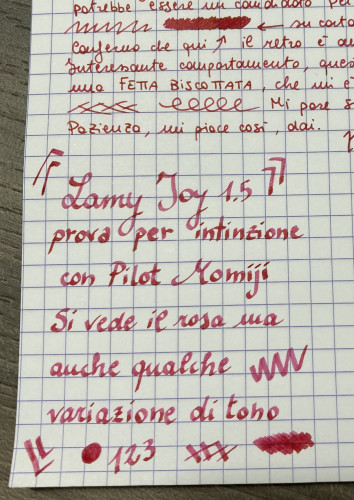 potrebbe essere un candidato per
su carta
Confermo che qui il retro è
interessante comportamento, ques
una FETTA BISCOTTATA, che mi è
Mi pare
Pazienza, mi piace così, dai.
Lamy Joy 1.5
prova per intinzione
con Pilot Momiji
Si vede il rosa ma
anche qualche
variazione di tono
123